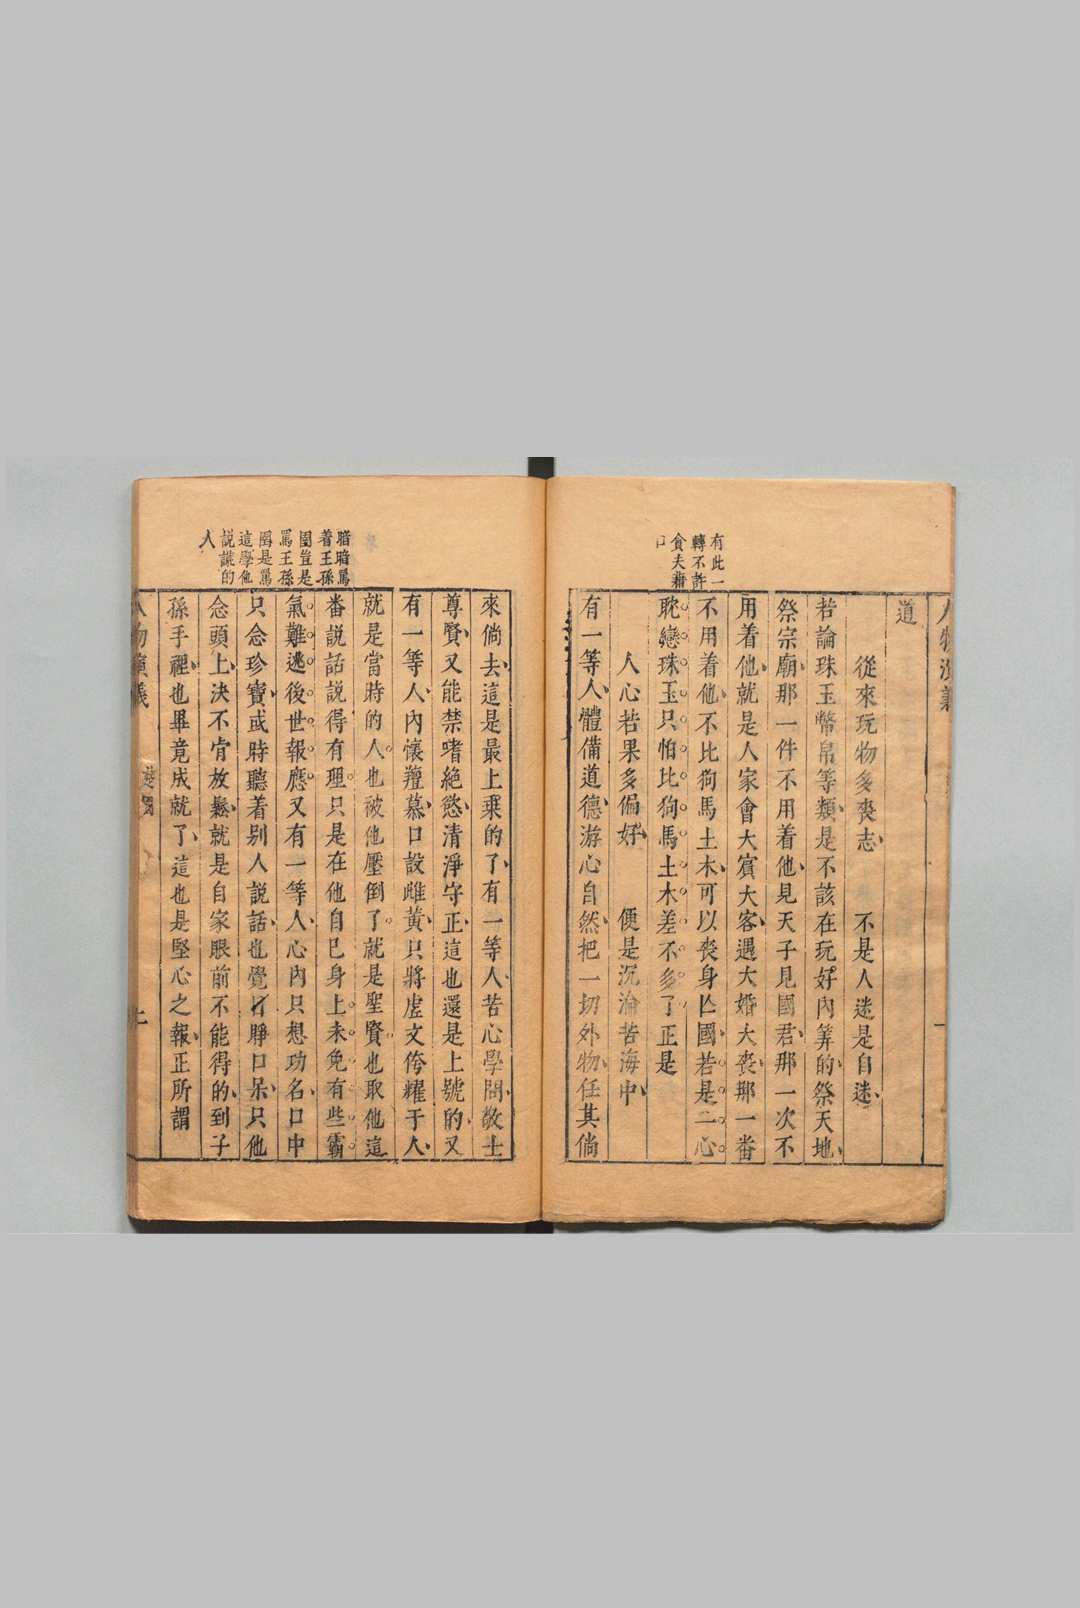 有此一
轉不許
貪夫藉
口
道
從來玩物多喪志　不是人迷是自迷
若論珠玉幣帛等類是不該在玩好內筭的祭天地
祭宗廟那一件不用着他見天子見國君那一次不
用着他就是人家會大賓大客遇大婚大喪那一番
不用着他不比狗馬土木可以喪身亡國若是二心
耽戀珠玉只怕比狗馬土木差不多了正是
人心若果多偏好　便是沉淪苦海中
有一等人體備道德游心自然把一切外物任其倘
暗暗罵
着王孫
圉豈是
罵王孫
圉是罵
這學他
説謊的
人
來倘去這是最上乘的了有一等人苦心學問敬士
尊賢又能禁嗜絕慾清淨守正這也還是上號的又
有一等人內懷羶慕口設雌黃只將虛文侉耀于人
就是當時的人也被他壓倒了就是聖賢也取他這
番説話説得有理只是在他自己身上未免有些霸
氣難逃後世報應又有一等人心內只想功名口中
只念珍寶或時聽着别人説話也覺睜口呆只他
念頭上決不肯放鬆就是自家眼前不能得的到子
孫手裡也畢竟成就了這也是堅心之報正所謂